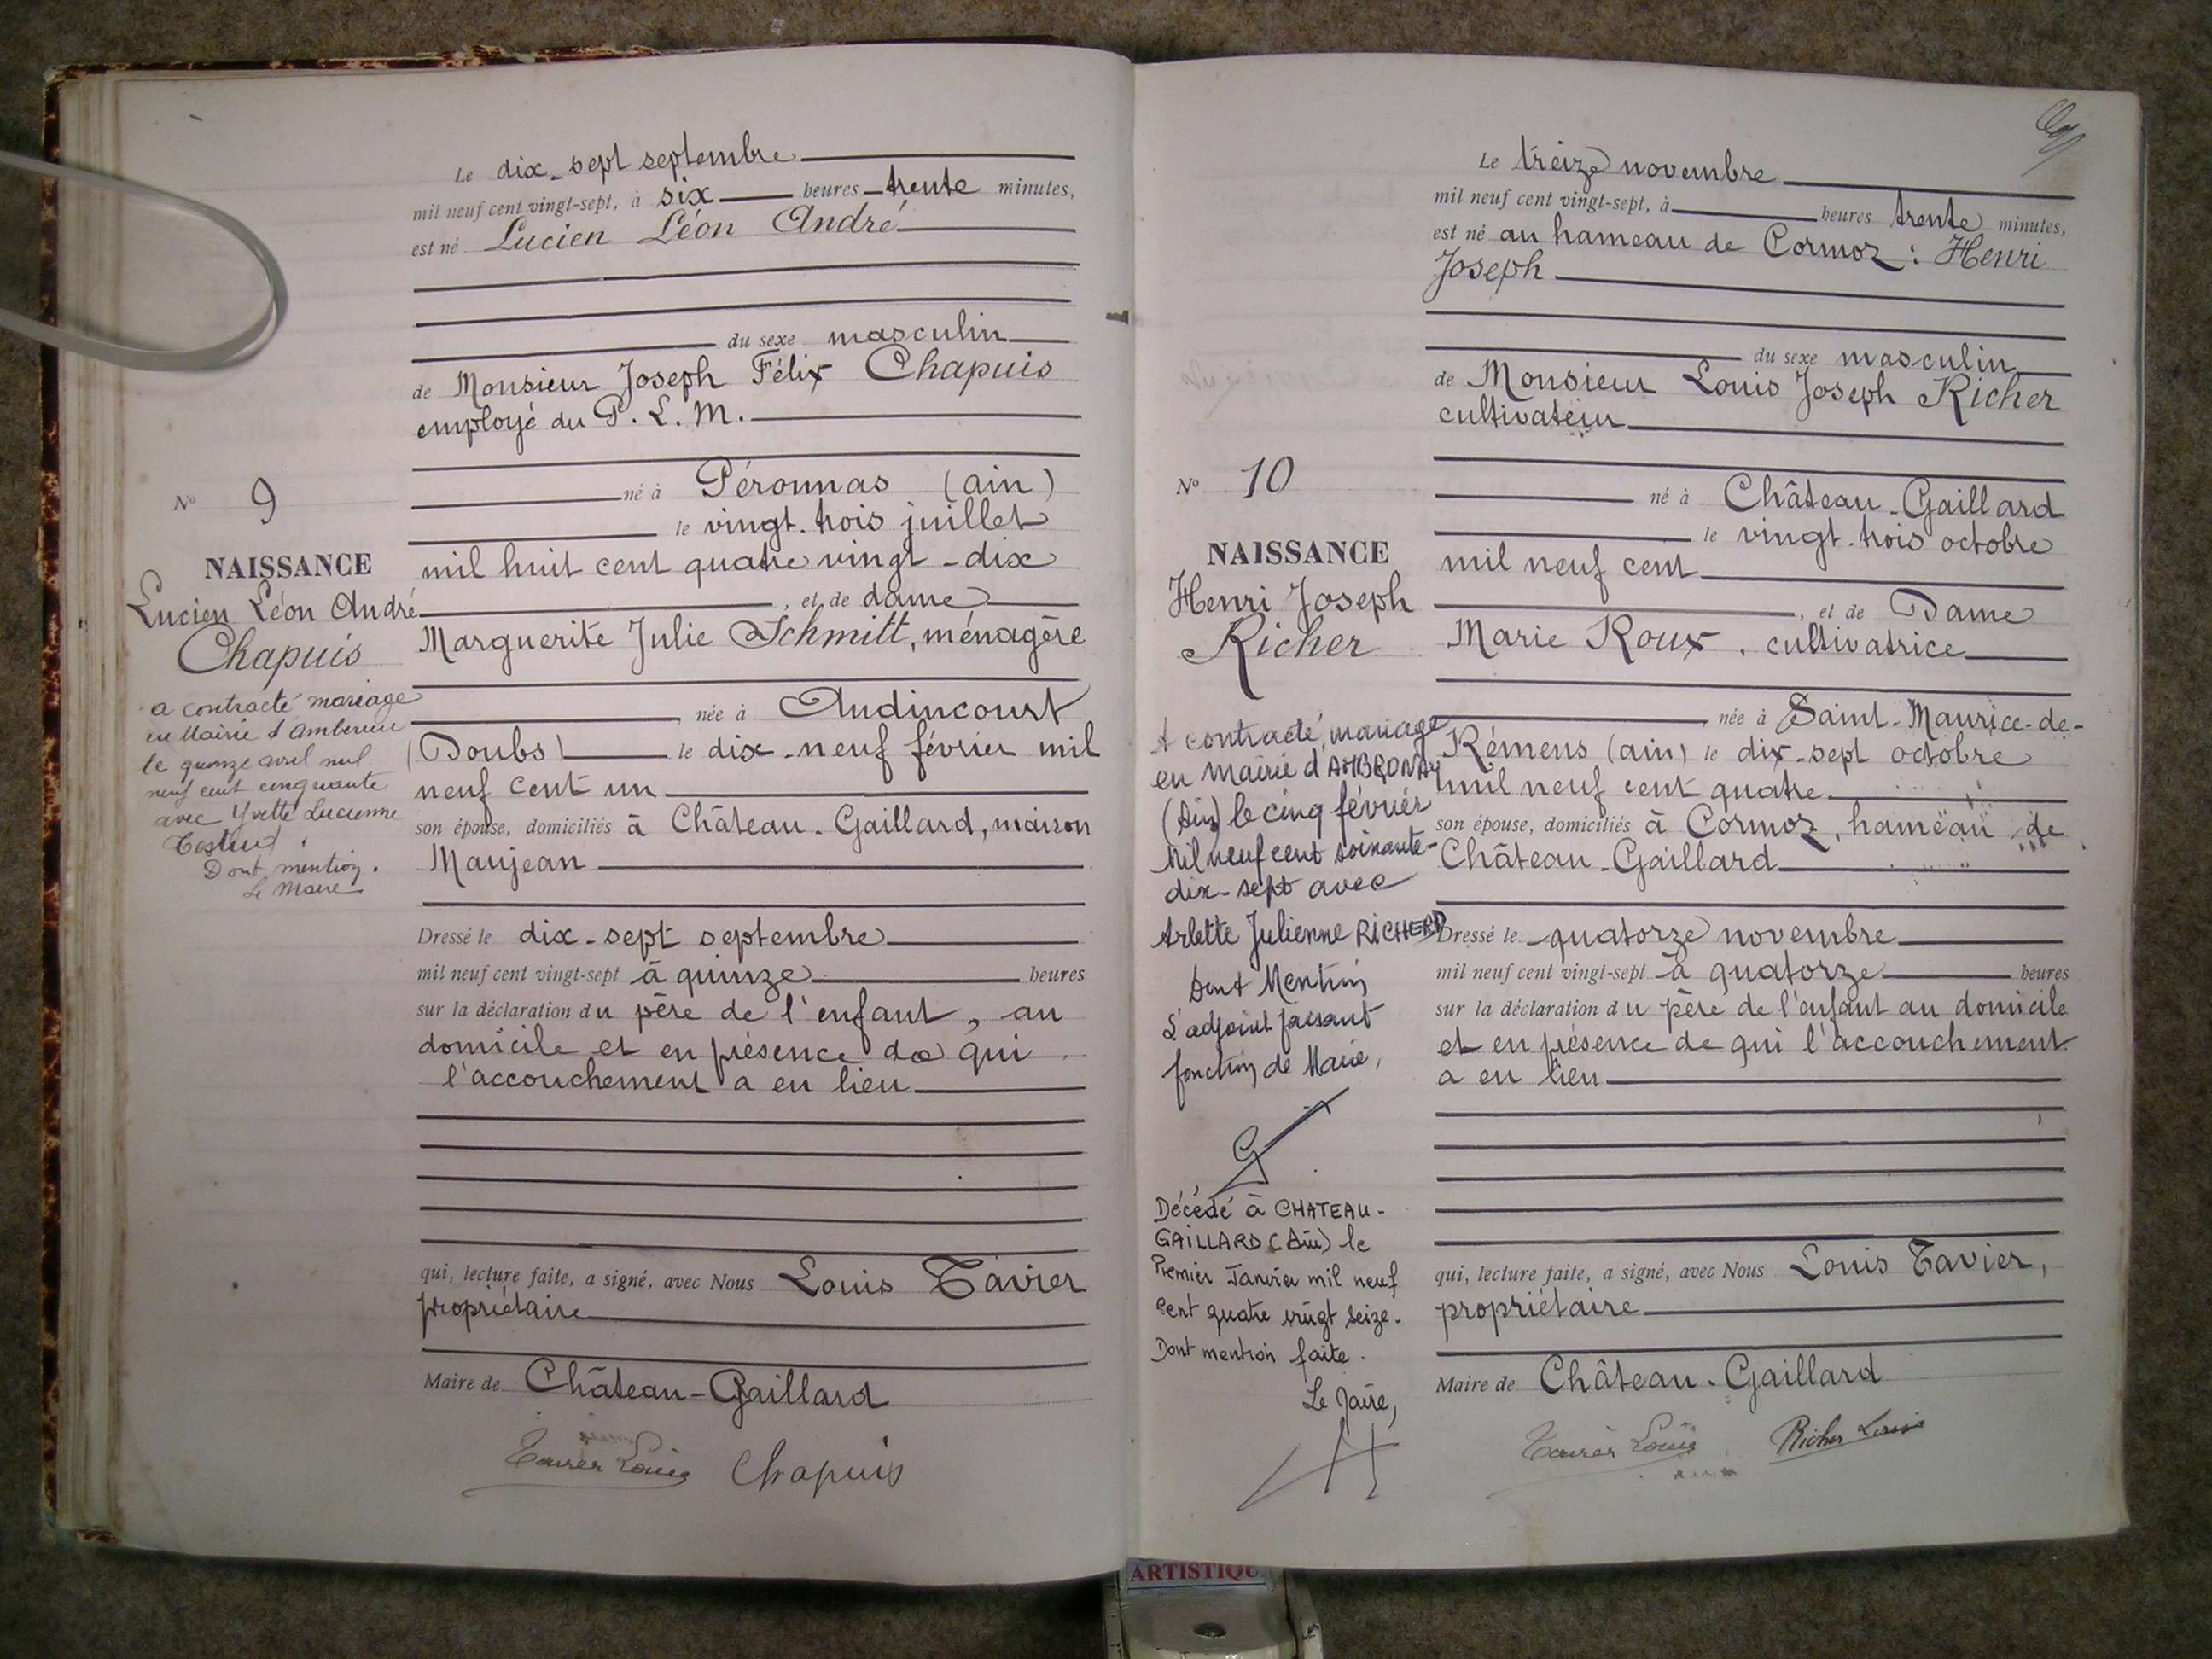 Le dix-sept septembre
mil neuf cent vingt-sept, à six heures trente minutes,
est né Lucien Léon André
du sexe masculin
de Monsieur Joseph Félix Chapuis
employé du P. L. M.
né à Péronnas (ain)
le vingt-trois juillet
mil huit cent quatre vingt-dix
, et de dame
Marguerite Julie Schmitt, ménagère
, née à Audincourt
(Doubs) le dix-neuf février mil
neuf cent un
son épouse, domiciliés à Château-Gaillard, maison
Maujean
Dressé le dix-sept septembre
mil neuf cent vingt-sept à quinze heures
sur la déclaration du père de l'enfant, au
domicile et en présence de qui
l'accouchement a eu lieu
qui, lecture faite, a signé, avec Nous Louis Tavier
propriétaire
Maire de Château-Gaillard
Tavier Louis Chapuis
N° 9
NAISSANCE
Lucien Léon André
Chapuis
a contracté mariage
en Mairie d'Ambérieu
le quinze avril mil
neuf cent cinquante
avec Yvette Lucienne
Dont mention.
Le Maire
Le treize novembre
mil neuf cent vingt-sept, à heures trente minutes,
est né au hameau de Cormoz : Henri
Joseph
du sexe masculin
de Monsieur Louis Joseph Richer
cultivateur
né à Château-Gaillard
le vingt-trois octobre
mil neuf cent
, et de Dame
Marie Roux, cultivatrice
née à Saint-Maurice-de-
Rémens (ain) le dix-sept octobre
mil neuf cent quatre
son épouse, domiciliés à Cormoz, hameau de
Château-Gaillard
Dressé le quatorze novembre
mil neuf cent vingt-sept à quatorze heures
sur la déclaration du père de l'enfant au domicile
et en présence de qui l'accouchement
a eu lieu
qui, lecture faite, a signé, avec Nous Louis Tavier,
propriétaire
Maire de Château-Gaillard
Tavier Louis Richer Louis
N° 10
NAISSANCE
Henri Joseph
Richer
A contracté mariage
en Mairie d'AMBRONAY
(Ain) le cinq février
Mil neuf cent soixante-
dix-sept avec
Arlette Julienne RICHERD
Dont Mention
L'adjoint faisant
fonction de Maire,
Décédé à CHATEAU-
GAILLARD (Ain) le
Premier Janvier mil neuf
cent quatre vingt seize.
Dont mention faite.
Le Maire,
ARTISTIQU